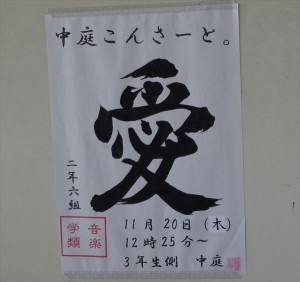 中庭こんさーと。
愛
二年六組
音楽
学類
11月20日(木)
12時25分～
3年生側 中庭